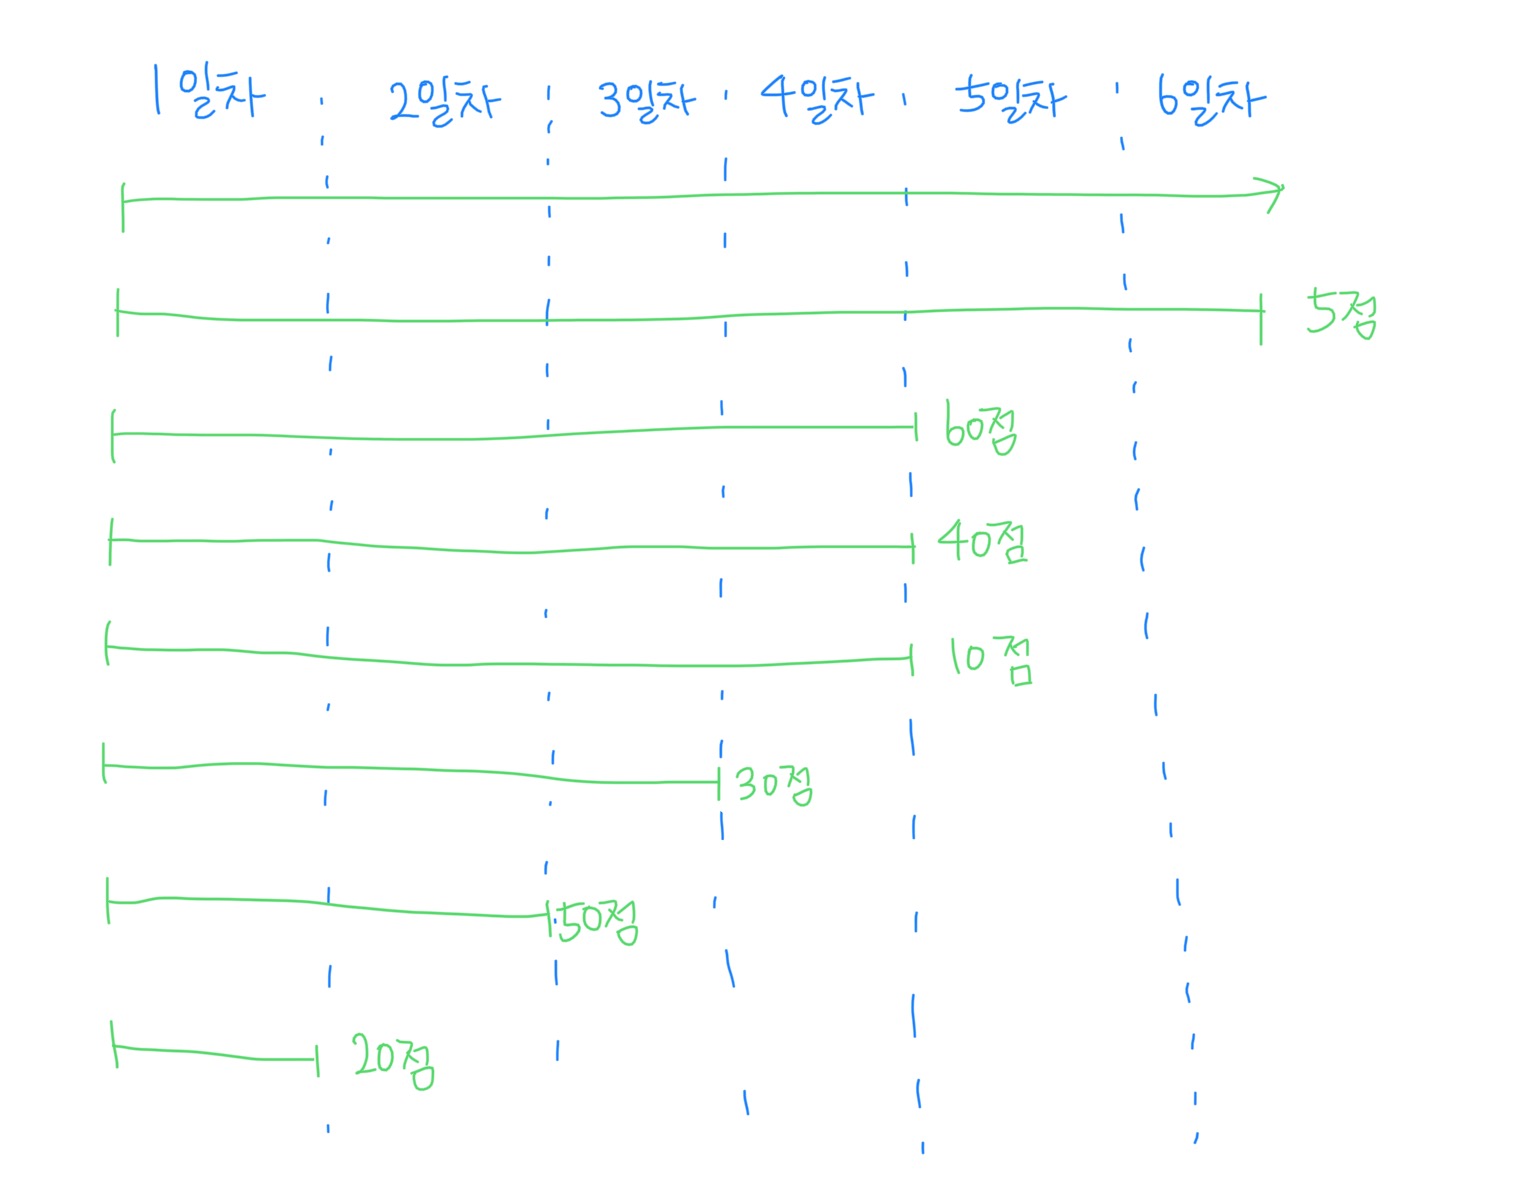 1일차 2일차 3일차 4일차 5일차 6일차
5점
60점
40점
10점
30점
50점
20점